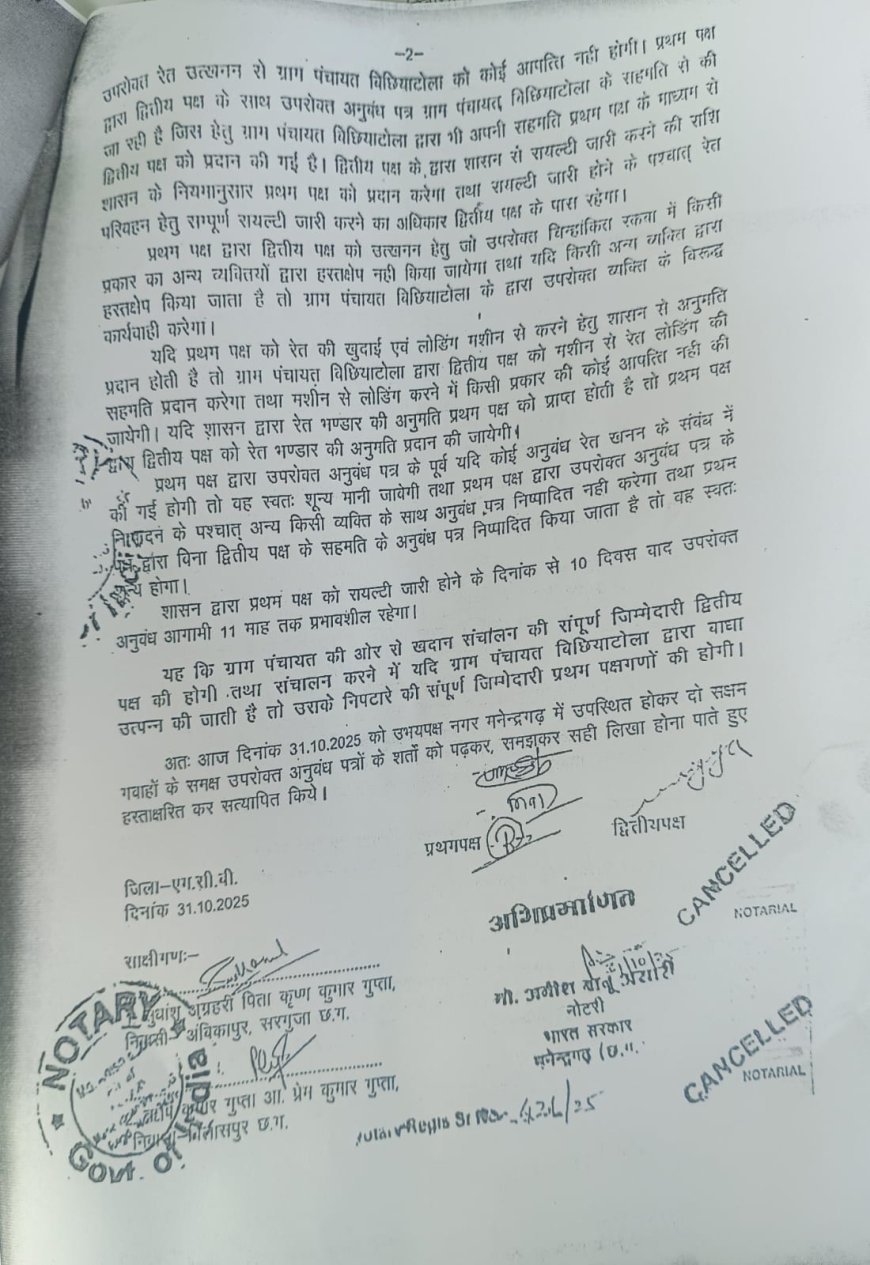 -2-
उपरोक्त रेत उत्खनन से ग्राम पंचायत विछियाटोला को कोई आपत्ति नही होगी। प्रथम पक्ष
द्वारा द्वितीय पक्ष के साथ उपरोक्त अनुबंध पत्र ग्राम पंचायत् विछियाटोला के सहमति से की
जा रही है जिस हेतु ग्राम पंचायत विछियाटोला द्वारा भी अपनी सहमति प्रथम पक्ष के माध्यम से
द्वितीय पक्ष को प्रदान की गई है। द्वितीय पक्ष के द्वारा शासन से रायल्टी जारी करने की राशि
शासन के नियमानुसार प्रथम पक्ष को प्रदान करेगा तथा रायल्टी जारी होने के पश्चात् रेत
परिवहन हेतु सम्पूर्ण रायल्टी जारी करने का अधिकार द्वितीय पक्ष के पास रहेगा।
प्रथम पक्ष द्वारा द्वितीय पक्ष को उत्खनन हेतु जो उपरोक्त चिन्हांकित रकवा में किसी
प्रकार का अन्य व्यक्तियों द्वारा हस्तक्षेप नही किया जायेगा तथा यदि किसी अन्य व्यक्ति द्वारा
हस्तक्षेप किया जाता है तो ग्राम पंचायत विछियाटोला के द्वारा उपरोक्त व्यक्ति के विरूद्ध
कार्यवाही करेगा।
यदि प्रथम पक्ष को रेत की खुदाई एवं लोडिंग मशीन से करने हेतु शासन से अनुमति
प्रदान होती है तो ग्राम पंचायत् विछियाटोला द्वारा द्वितीय पक्ष को मशीन से रेत लोडिंग की
सहमति प्रदान करेगा तथा मशीन से लोडिंग करने में किसी प्रकार की कोई आपत्ति नही की
जायेगी। यदि शासन द्वारा रेत भण्डार की अनुमति प्रथम पक्ष को प्राप्त होती है तो प्रथम पक्ष
द्वारा द्वितीय पक्ष को रेत भण्डार की अनुमति प्रदान की जायेगी।
प्रथम पक्ष द्वारा उपरोक्त अनुबंध पत्र के पूर्व यदि कोई अनुबंध रेत खनन के संबंध में
की गई होगी तो वह स्वतः शून्य मानी जावेगी तथा प्रथम पक्ष द्वारा उपरोक्त अनुबंध पत्र के
निष्पादन के पश्चात् अन्य किसी व्यक्ति के साथ अनुबंध पत्र निष्पादित नही करेगा तथा प्रथम
पक्ष द्वारा विना द्वितीय पक्ष के सहमति के अनुबंध पत्र निष्पादित किया जाता है तो वह स्वतः
शून्य होगा।
शासन द्वारा प्रथम पक्ष को रायल्टी जारी होने के दिनांक से 10 दिवस वाद उपरोक्त
अनुबंध आगामी 11 माह तक प्रभावशील रहेगा।
यह कि ग्राम पंचायत की ओर से खदान संचालन की संपूर्ण जिम्मेदारी द्वितीय
पक्ष की होगी तथा संचालन करने में यदि ग्राम पंचायत विछियाटोला द्वारा वाधा
उत्पन्न की जाती है तो उसके निपटारे की संपूर्ण जिम्मेदारी प्रथम पक्षगणों की होगी।
अतः आज दिनांक 31.10.2025 को उभयपक्ष नगर मनेन्द्रगढ़ में उपस्थित होकर दो सक्षम
गवाहों के समक्ष उपरोक्त अनुबंध पत्रों के शर्तो को पढ़कर, समझकर सही लिखा होना पाते हुए
हस्ताक्षरित कर सत्यापित किये।
प्रथमपक्ष द्वितीयपक्ष
जिला-एम.सी.वी.
दिनांक 31.10.2025
अभिप्रमाणित
CANCELLED
NOTARIAL
साक्षीगणः-
अग्रहरी पिता कृष्ण कुमार गुप्ता,
निवासी- अंविकापुर, सरगुजा छ.ग.
नोटरी
भारत सरकार
मनेन्द्रगढ़
CANCELLED
NOTARIAL
कुमार गुप्ता आ. प्रेम कुमार गुप्ता,
छ.ग.
NOTARY
Govt. Of India